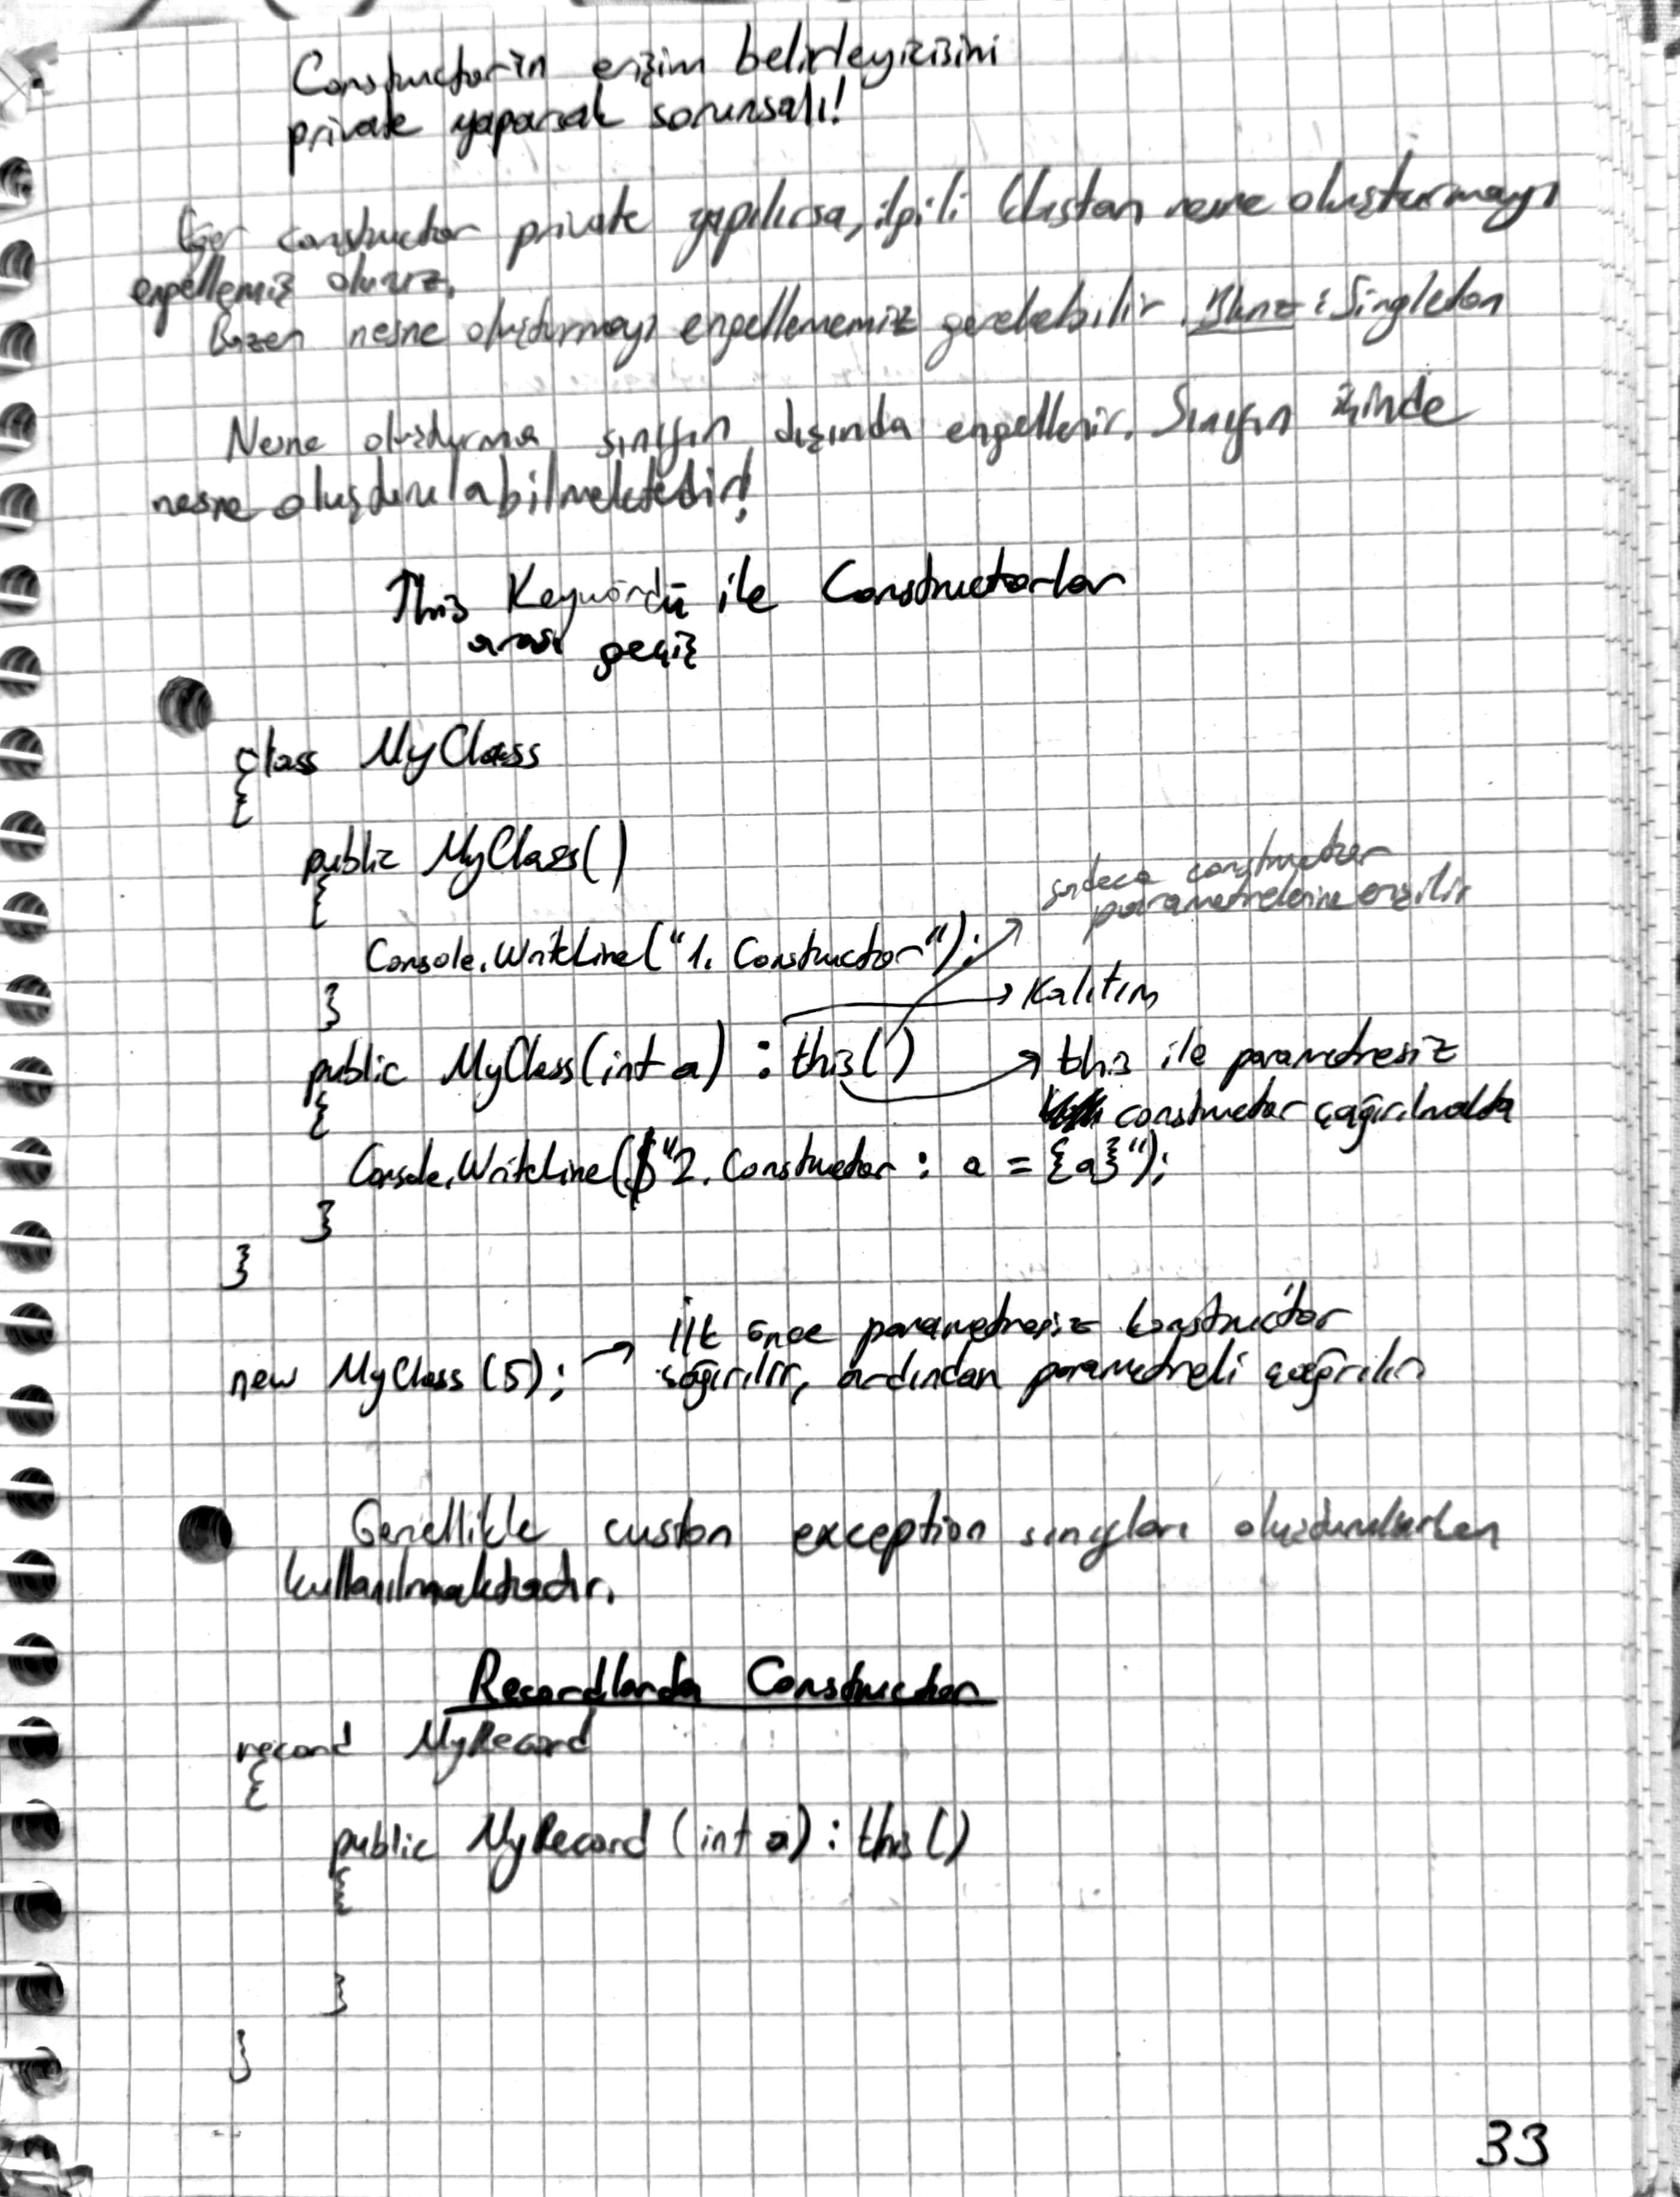 Constructor'ın erişim belirleyicisini
private yaparsak sorunsalı!
Eğer constructor private yapılırsa, ilgili klastan nesne oluşturmayı
engellemiş oluruz.
Bazen nesne oluşturmayı engellememiz gerekebilir. Bknz : Singleton
Nesne oluşturma sınıfın dışında engellenir. Sınıfın içinde
nesne oluşturulabilmektedir!
This Keywordü ile Constructorlar
arası geçiş
class MyClass
{
public MyClass()
{
sadece constructor
parametrelerine erişilir
Console.WriteLine("1. Constructor");
}
→ Kalıtım
public MyClass(int a) : this()
→ this ile parametresiz
{
constructor çağırılmakta
Console.WriteLine($"2. Constructor : a = {a}");
}
}
new MyClass (5); → İlk önce parametresiz konstructor
çağırılır, ardından parametreli çağrılır
Genellikle custom exception sınıfları oluşturulurken
kullanılmaktadır.
Recordlarda Constructor
record MyRecord
{
public MyRecord (int a) : this ()
{
}
}
33